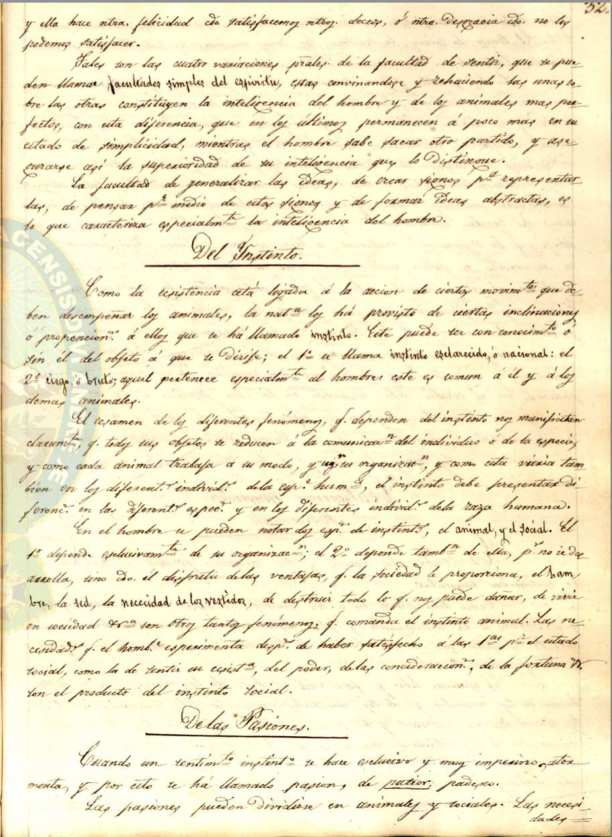 52.
y ella hace ntra. felicidad cdo satisfacemos ntros. deceos, ó ntra. Desgracia do. no los
podemos satisfacer.
Tales son las cuatro variaciones prales. de la facultad de sentir, que se pue
den llamar facultades simples del espiritu, estas convinandose y rehaciendo las unas so
bre las otras constituyen la inteligencia del hombre y de los animales mas per
fectos, con esta diferencia, que en los ultimos permanecen á poco mas en su
estado de simplicidad, mientras el hombre sabe sacar otro partido, y ase
gurarse asi la superioridad de su inteligencia que lo Distingue.
La facultad de generalizar las ideas, de crear signos pa. representar
las, de pensar pr. medio de estos signos y de formar ideas abstractas, es
lo que caracteriza especialmte. la inteligencia del hombre.
Del Ynstinto.
Como la existencia está ligada á la accion de ciertos movimtos. que de
ben desempeñar los animales, la nata. los há provisto de ciertas inclinaciones
ó propencion. á ellos que se há llamado instinto. Este puede ser con conocimto. ó
sin él del objeto á que se Dirije; el 1o. se llama instinto esclarecido, ó nacional: el
2o. ciego, ó bruto; aquel pertenece especialmte. al hombre; este es comun á él y á los
demas animales.
El ecsamen de los diferentes fenómens. q. dependen del instinto nos manifiestan
claramte. q. todos sus objetos se reducen á la del individuo ó de la especie;
y como cada animal trabaja á su modo, y sgn. su organizacn., y como esta viaria tam
bien en los diferents. individs. de la espe. huma., el instinto debe presentar di
ferencs. en las diferents. especs. y en los diferentes individs. de la raza humana.
En el hombre se pueden notar dos esps. de instints., el animal, y el social. El
1o. depende esclucivamte. de su organizacn.; el 2o. depende tambn. de ella, po. no se de
sarrolla, sino cdo. el disfruta de las ventajas, q. la sociedad le proporciona, el ham
bre, la sed, la necicidad de los vestidos, de destruir todo lo q. nos puede dañar, de vivir
en sociedad &ra. son otros tantos fenómens. q. comanda el instinto animal. Las ne
cesidads. q. el hombe. esperimenta desps. de haber satisfecho á las 1as. pr. el estado
social, como la de sentir su ecsista., del poder, de las consideracions., de la fortuna &.
son el producto del instinto social.
De las Pasiones.
Cuando un sentimto. instinto. se hace esclucivo y muy imperioso, ator
menta, y por esto se há llamado pasion, de patior, padesco.
Las pasiones pueden dividirse en animales y sociales. Las necesi
dades